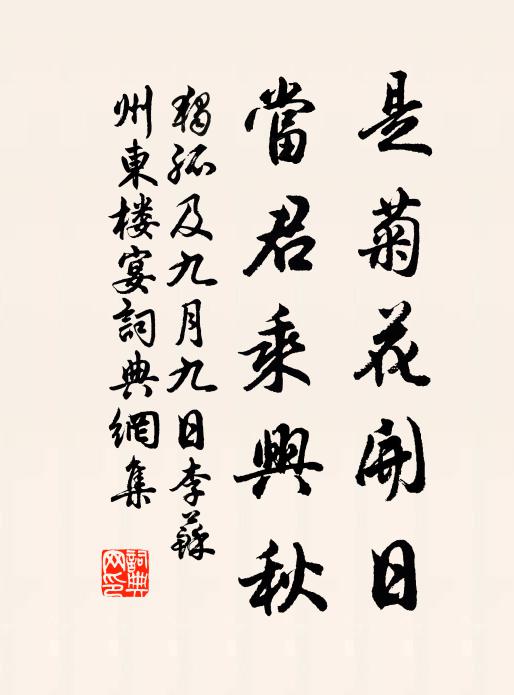 是菊花開日
當君乘興秋
獨孤及九月九日李蘇
州東楼宴詞典網集
詞典
网印